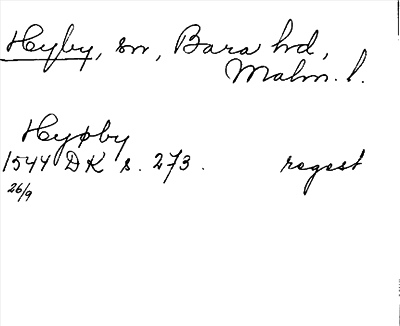 Hyby, sn, Bara hd,
Malm. l.
Hyøby
1544 DK s. 273. regest
26/9